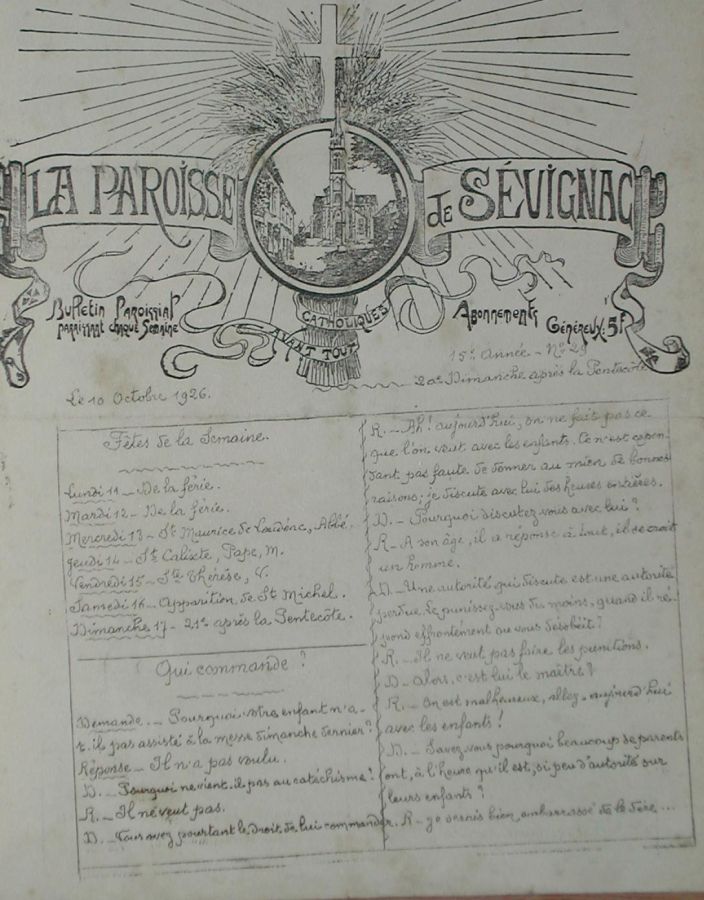 LA PAROISSE
de SÉVIGNAC
Bulletin Paroissial
paraissant chaque Semaine
CATHOLIQUES
AVANT TOUT
Abonnements
Généreux: 5f
15e Année - No 29
20e Dimanche après la Pentecôte
Le 10 Octobre 1926.
Fêtes de la Semaine.
Lundi 11 - De la férie.
Mardi 12 - De la férie.
Mercredi 13 - St Maurice de Loudéac, Abbé.
Jeudi 14 - St Calixte, Pape, M.
Vendredi 15 - Ste Thérèse, V.
Samedi 16 - Apparition de St Michel.
Dimanche 17 - 21e après la Pentecôte.
Qui commande ?
Demande. - Pourquoi votre enfant n'a-
t-il pas assisté à la messe dimanche dernier ?
Réponse - Il n'a pas voulu.
D. - Pourquoi ne vient-il pas au catéchisme ?
R. - Il ne veut pas.
D. - Vous avez pourtant le droit de lui commander.
R. - Ah ! aujourd'hui, on ne fait pas ce
que l'on veut avec les enfants. Ce n'est cepen-
dant pas faute de donner au mien de bonnes
raisons ; je discute avec lui des heures entières.
D. - Pourquoi discutez-vous avec lui ?
R - A son âge, il a réponse à tout, il se croit
un homme.
D. - Une autorité qui discute est une autorité
perdue. Le punissez-vous du moins, quand il ré-
pond effrontément ou vous désobéit ?
R. - Il ne veut pas faire les punitions.
D - Alors, c'est lui le maître ?
R. - On est malheureux, allez, aujourd'hui
avec les enfants !
D. - Savez-vous pourquoi beaucoup de parents
ont, à l'heure qu'il est, si peu d'autorité sur
leurs enfants ?
R - Je serais bien embarrassé de le dire ...